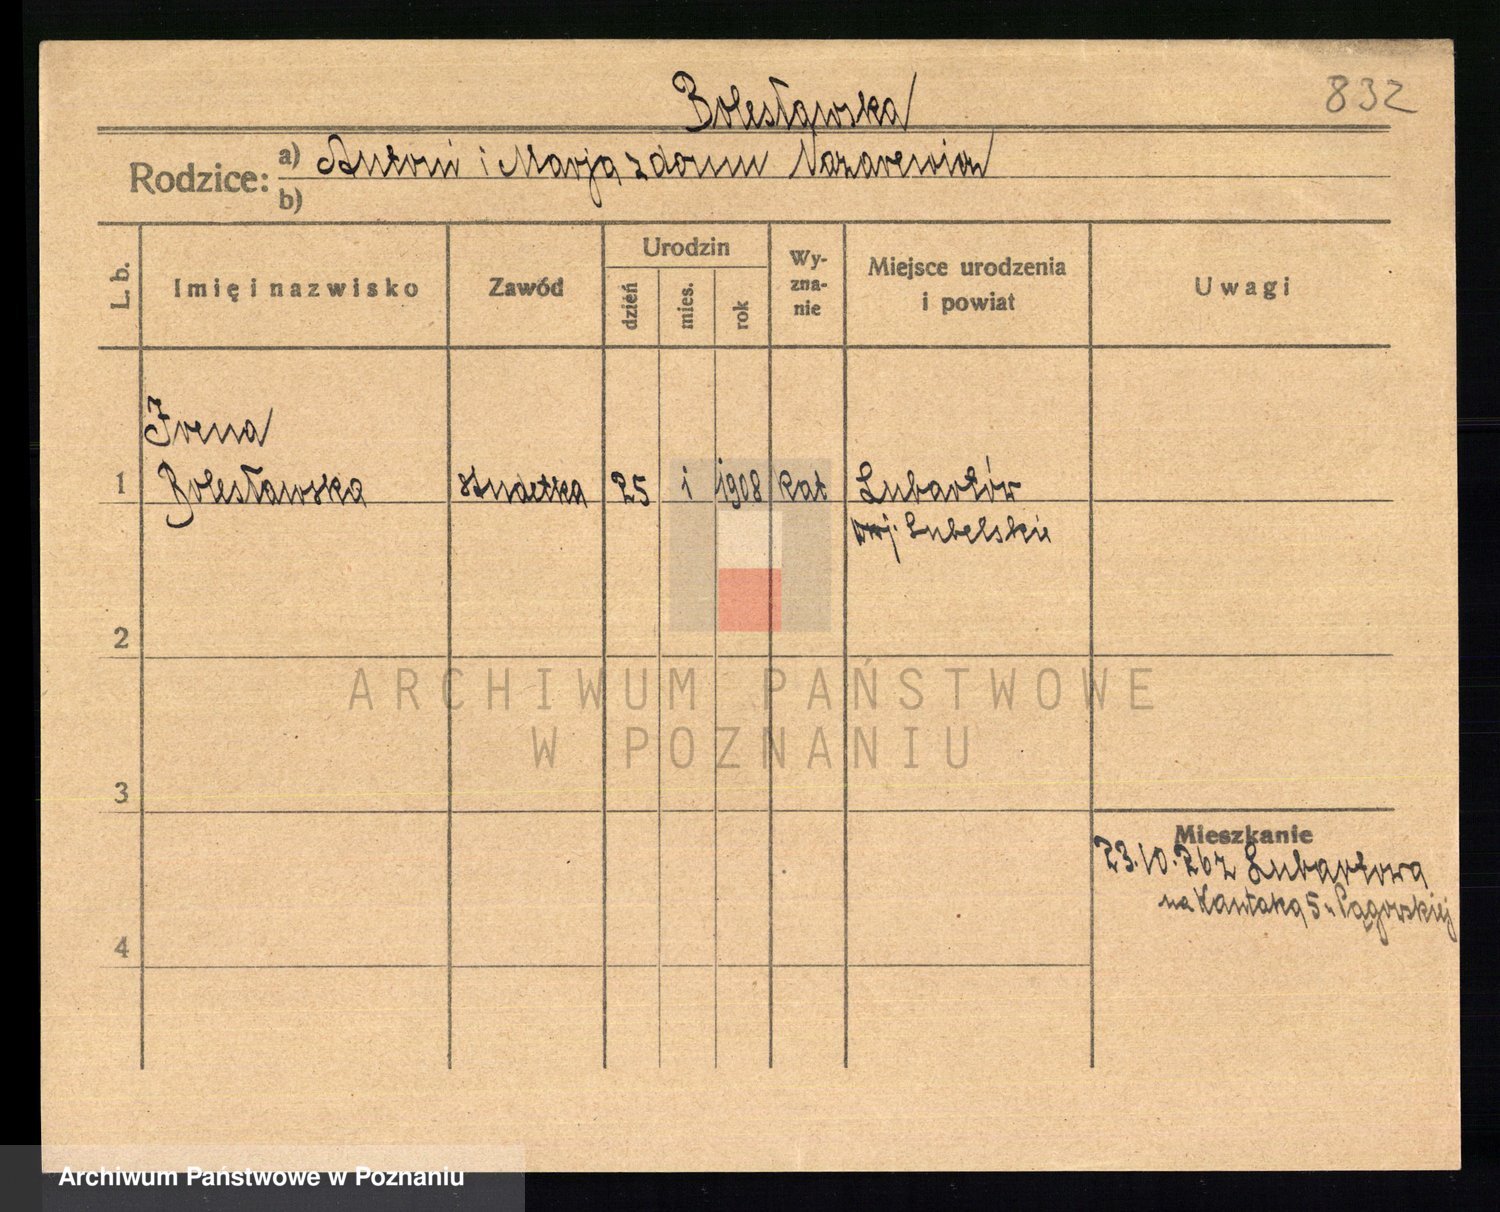 832
Bolesławska
Rodzice: a) Antoni i Marja z domu Nazarewicz
b)
L. b. Imię i nazwisko Zawód Urodzin dzień mies. rok Wy-zna-nie Miejsce urodzenia i powiat Uwagi
Irena
1 Bolesławska studetka 25 i 1908 kat Lubartów
woj. Lubelskie
2
ARCHIWUM PAŃSTWOWE
W POZNANIU
3
Mieszkanie
23.10.26 z Lubartowa
na Kantaka 5 u
4
Archiwum Państwowe w Poznaniu